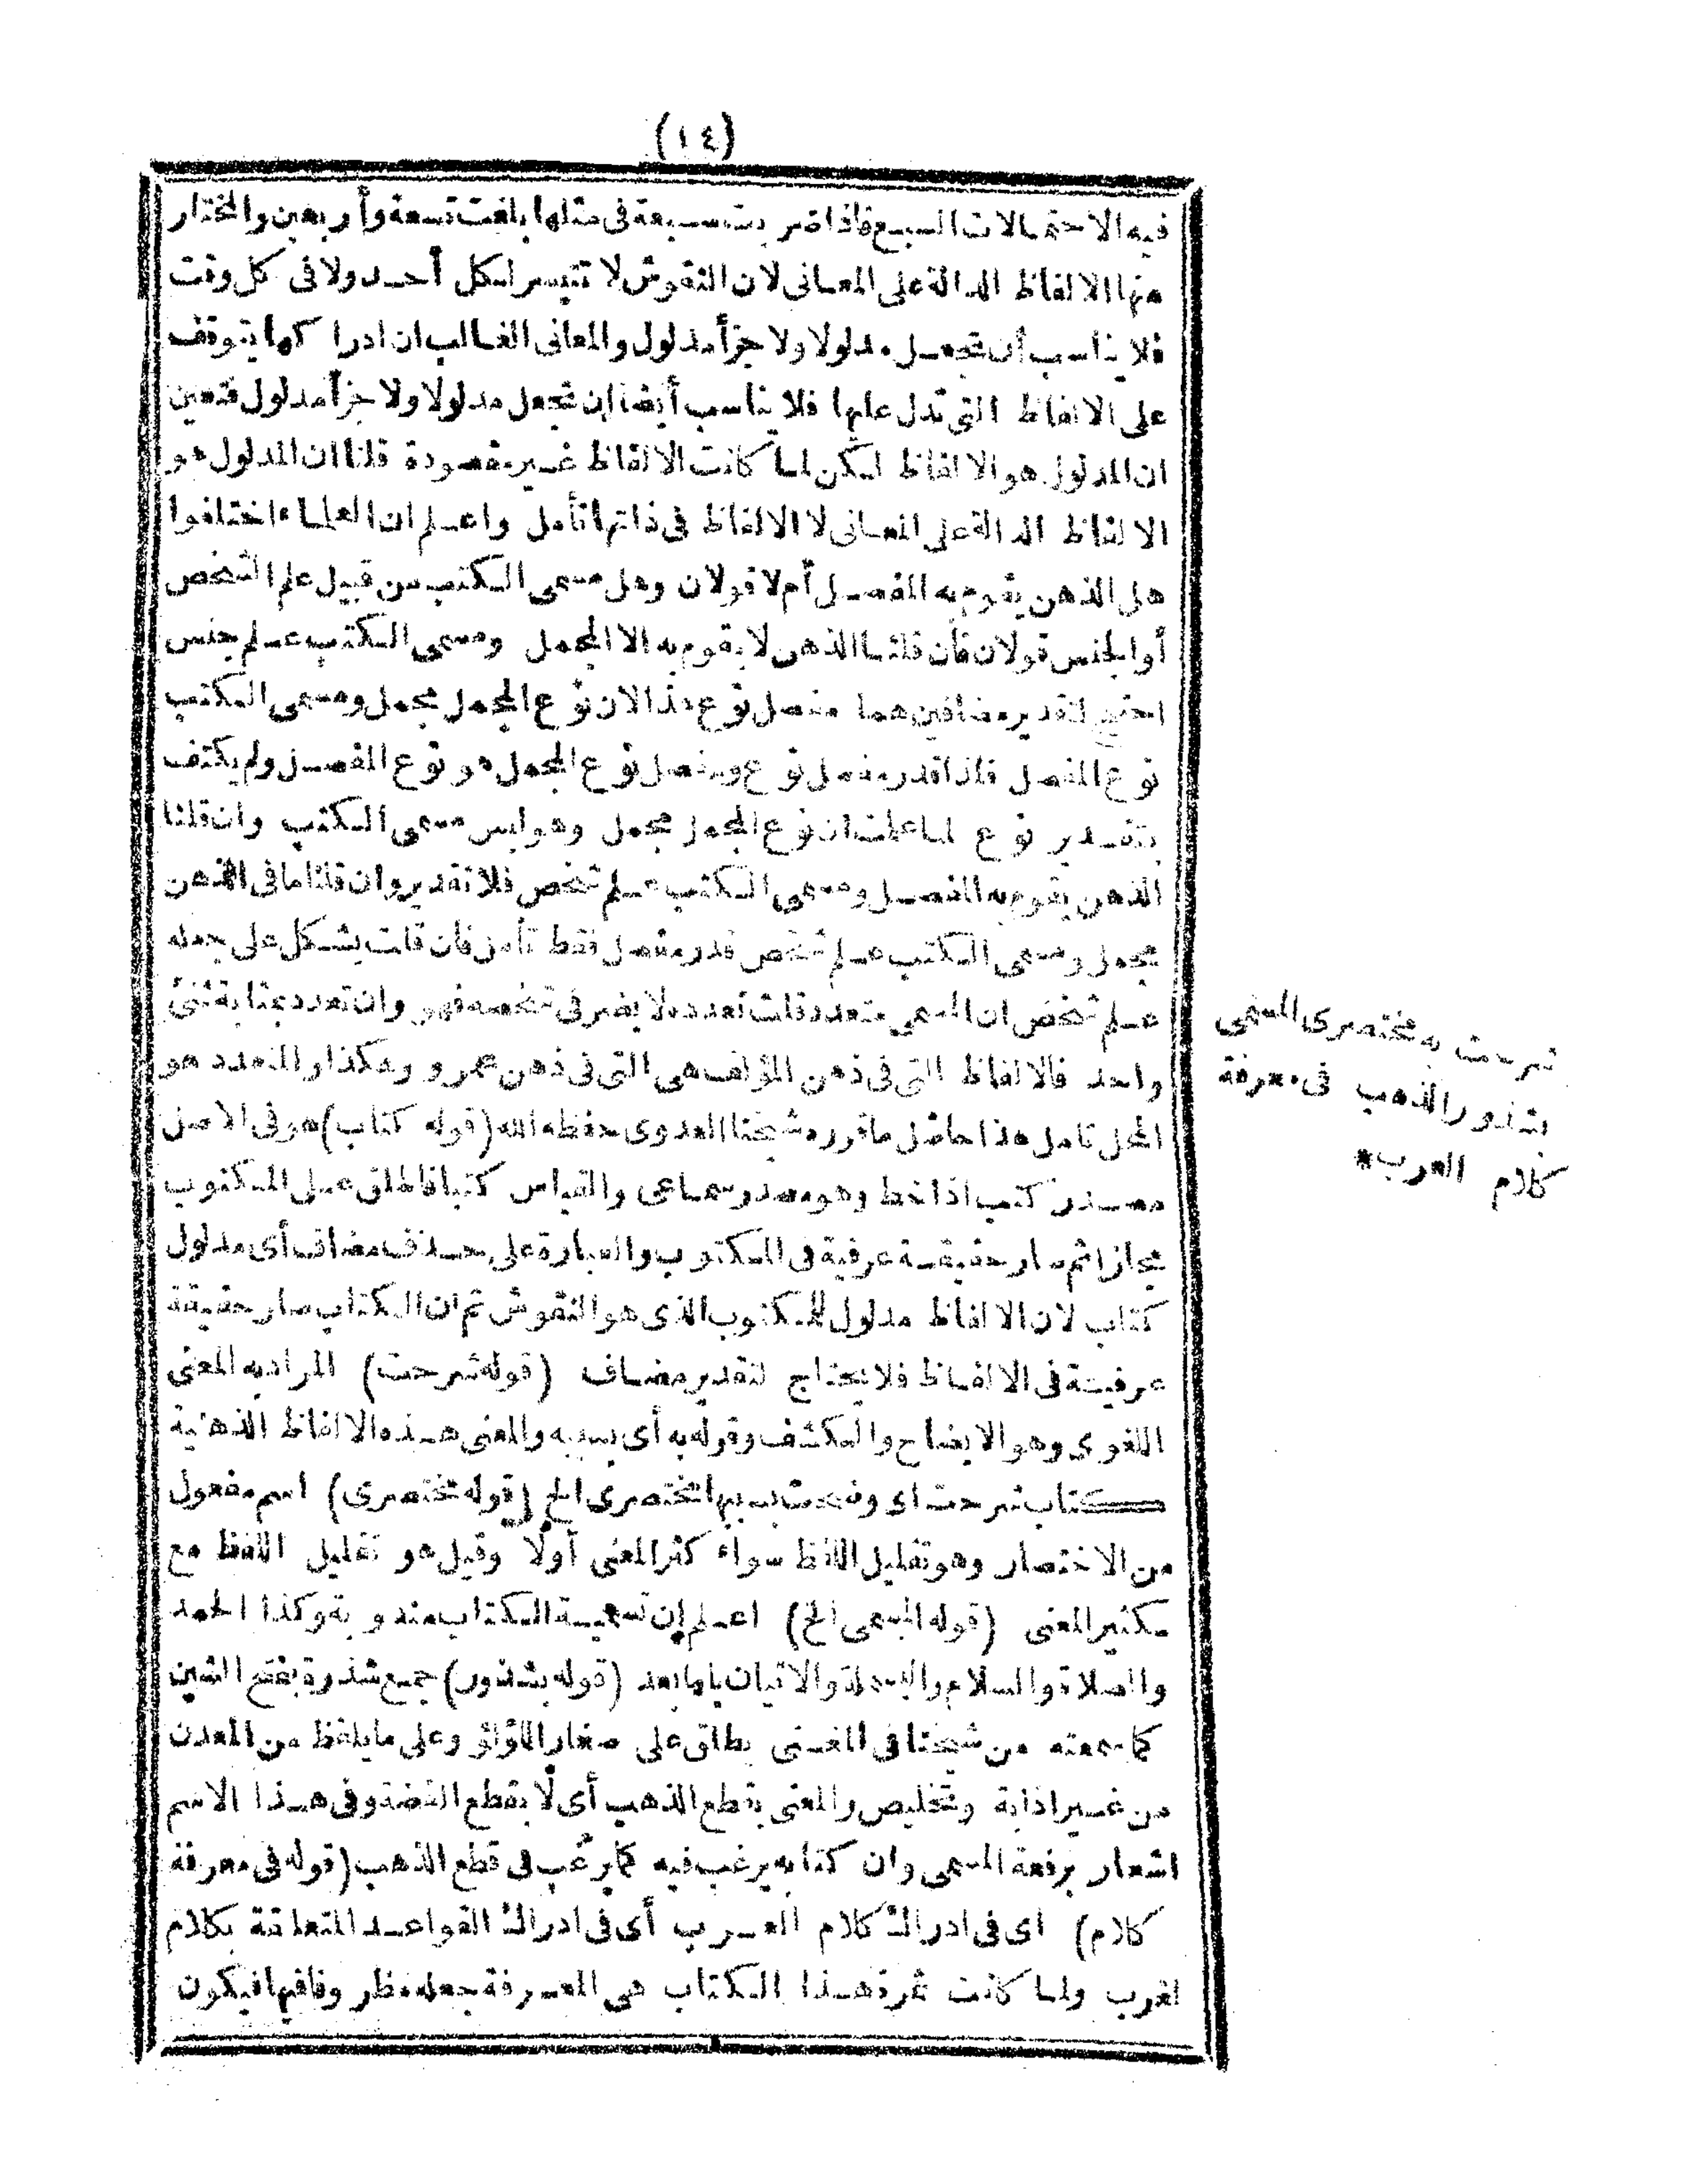 (١٤)
فيه الاحتمالات السبع فاذا ضربت سبعة في مثلها بلغت تسعة وأربعين والمختار
منها الالفاظ الدالة على المعاني لان النقوش لا تتيسر لكل أحد ولا في كل وقت
فلا يناسب أن تجعل مدلولا ولا جزأ مدلول والمعاني الغالب ان ادراكها يتوقف
على الالفاظ التي تدل عليها فلا يناسب أيضا ان تجعل مدلولا ولا جزأ مدلول فتعين
ان المدلول هو الالفاظ لكن لما كانت الالفاظ غير مقصودة قلنا ان المدلول هو
الالفاظ الدالة على المعاني لا الالفاظ في ذاتها تأمل واعلم ان العلماء اختلفوا
هل الذهن يقوم به المفصل أم لا قولان وهل مسمى الكتب من قبيل علم الشخص
أو الجنس قولان فان قلنا الذهن لا يقوم به الا المجمل ومسمى الكتب علم جنس
احتيج لتقدير مضافين هما مفصل نوع هذا لان نوع المجمل مجمل ومسمى الكتب
نوع المفصل فاذا قدر مفصل نوع ومفصل نوع المجمل هو نوع المفصل ولم يكتف
بتقدير نوع لما علمت ان نوع المجمل مجمل وهو ليس مسمى الكتب وان قلنا
الذهن يقوم به المفصل ومسمى الكتب علم شخص فلا تقدير وان قلنا ما في الذهن
مجمل ومسمى الكتب علم شخص قدر مفصل فقط تأمل فان قلت يشكل على جعله
علم شخص ان المسمى متعدد قلت تعدده لا يضر في تشخصه فهو وان تعدد بمثابة شئ
واحد فالالفاظ التي في ذهن المؤلف هي التي في ذهن عمرو وهكذا والمتعدد هو
المحل تامل هذا حاصل ما قرره شيخنا العدوى حفظه الله (قوله كتاب) هو في الاصل
مصدر كتب اذا خط وهو مصدر سماعى والقياس كتبا فاطلق على المكتوب
مجازا ثم صار حقيقة عرفية في المكتوب والعبارة على حذف مضاف أى مدلول
كتاب لان الالفاظ مدلول للمكتوب الذى هو النقوش ثم ان الكتاب صار حقيقة
عرفية في الالفاظ فلا يحتاج لتقدير مضاف (قوله شرحت) المراد به المعنى
اللغوى وهو الايضاح والكشف وقوله به أى بسببه والمعنى هذه الالفاظ الذهنية
كتاب شرحت اى وضحت بسببها مختصرى الخ (قوله مختصرى) اسم مفعول
من الاختصار وهو تقليل اللفظ سواء كثر المعنى أولا وقيل هو تقليل اللفظ مع
تكثير المعنى (قوله المسمى الخ) اعلم ان تسمية الكتاب مندوبة وكذا الحمد
والصلاة والسلام والبسملة والاتيان باما بعد (قوله بشذور) جمع شذرة بفتح الشين
كما سمعته من شيخنا في المغنى يطلق على صغار اللؤلؤ وعلى ما يلفظ من المعدن
من غير اذابة وتخليص والمعنى بقطع الذهب أى لا بقطع الفضة وفي هذا الاسم
اشعار برفعة المسمى وان كتابه يرغب فيه كما يرغب في قطع الذهب (قوله في معرفة
كلام) اى في ادراك كلام العرب أى في ادراك القواعد المتعلقة بكلام
العرب ولما كانت ثمرة هذا الكتاب هى المعرفة جعله مظروفا فيها فيكون
شرحت به مختصرى المسمى
بشذور الذهب في معرفة
كلام العرب *